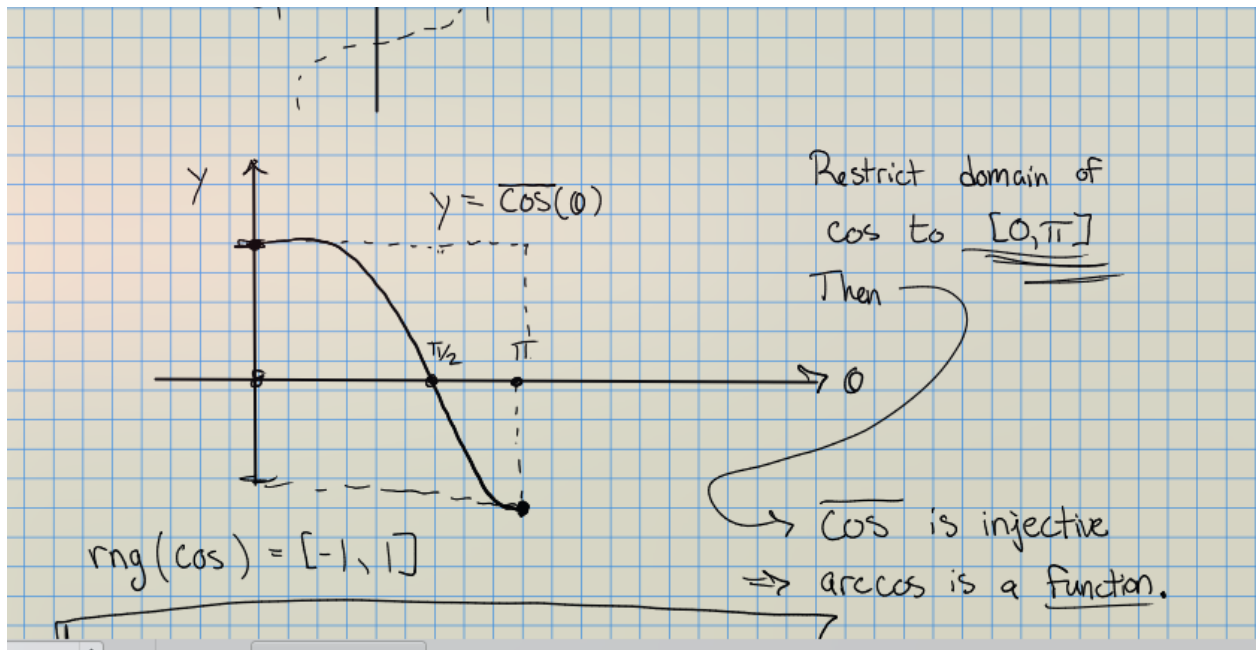 y
y = c̅o̅s̅(θ)
π/2
π
θ
rng(cos) = [-1, 1]
Restrict domain of
cos to [0, π]
Then
c̅o̅s̅ is injective
⇒ arccos is a function.